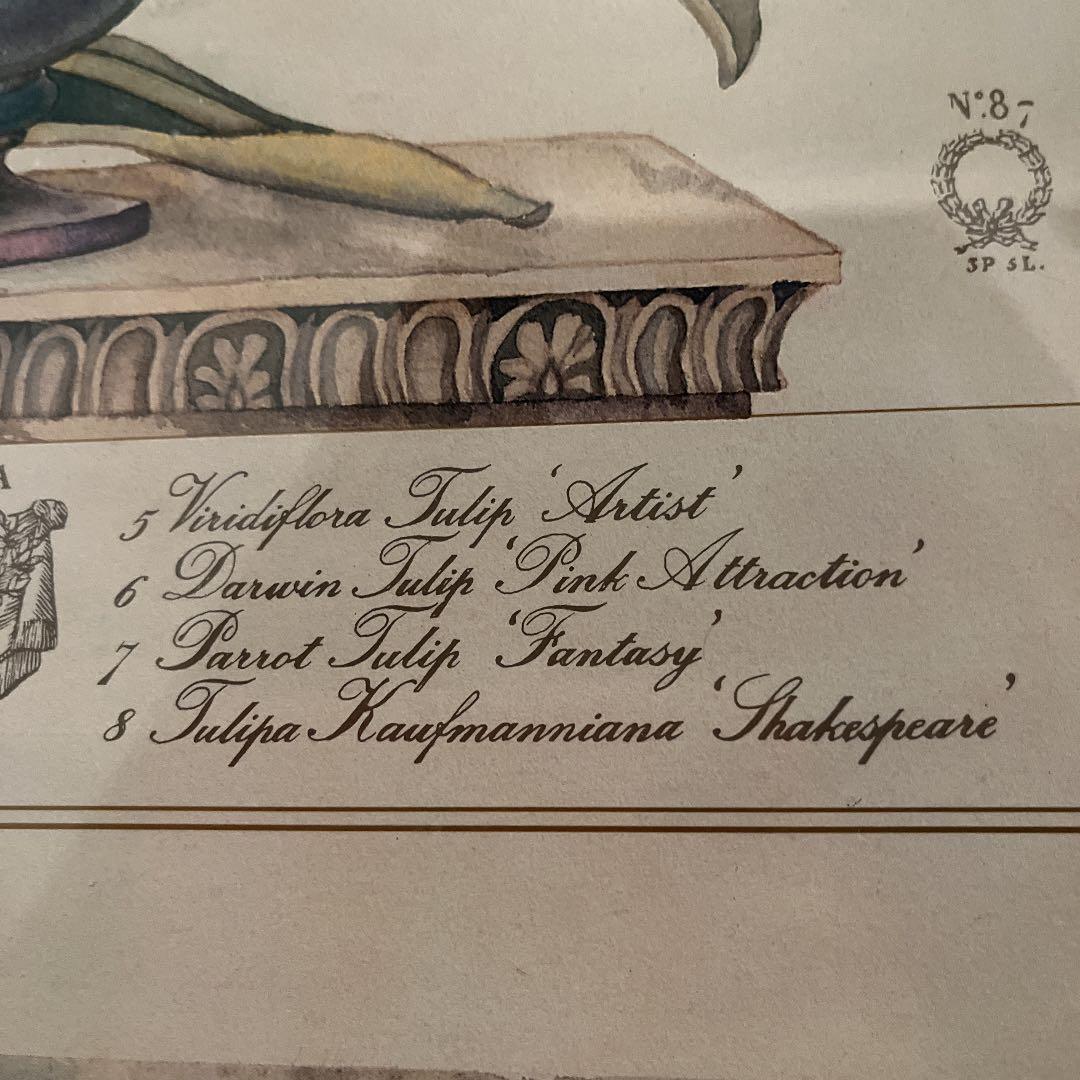 Nº.87
3P 5L.
A
5 Viridiflora Tulip ‘Artist’
6 Darwin Tulip ‘Pink Attraction’
7 Parrot Tulip ‘Fantasy’
8 Tulipa Kaufmanniana ‘Shakespeare’